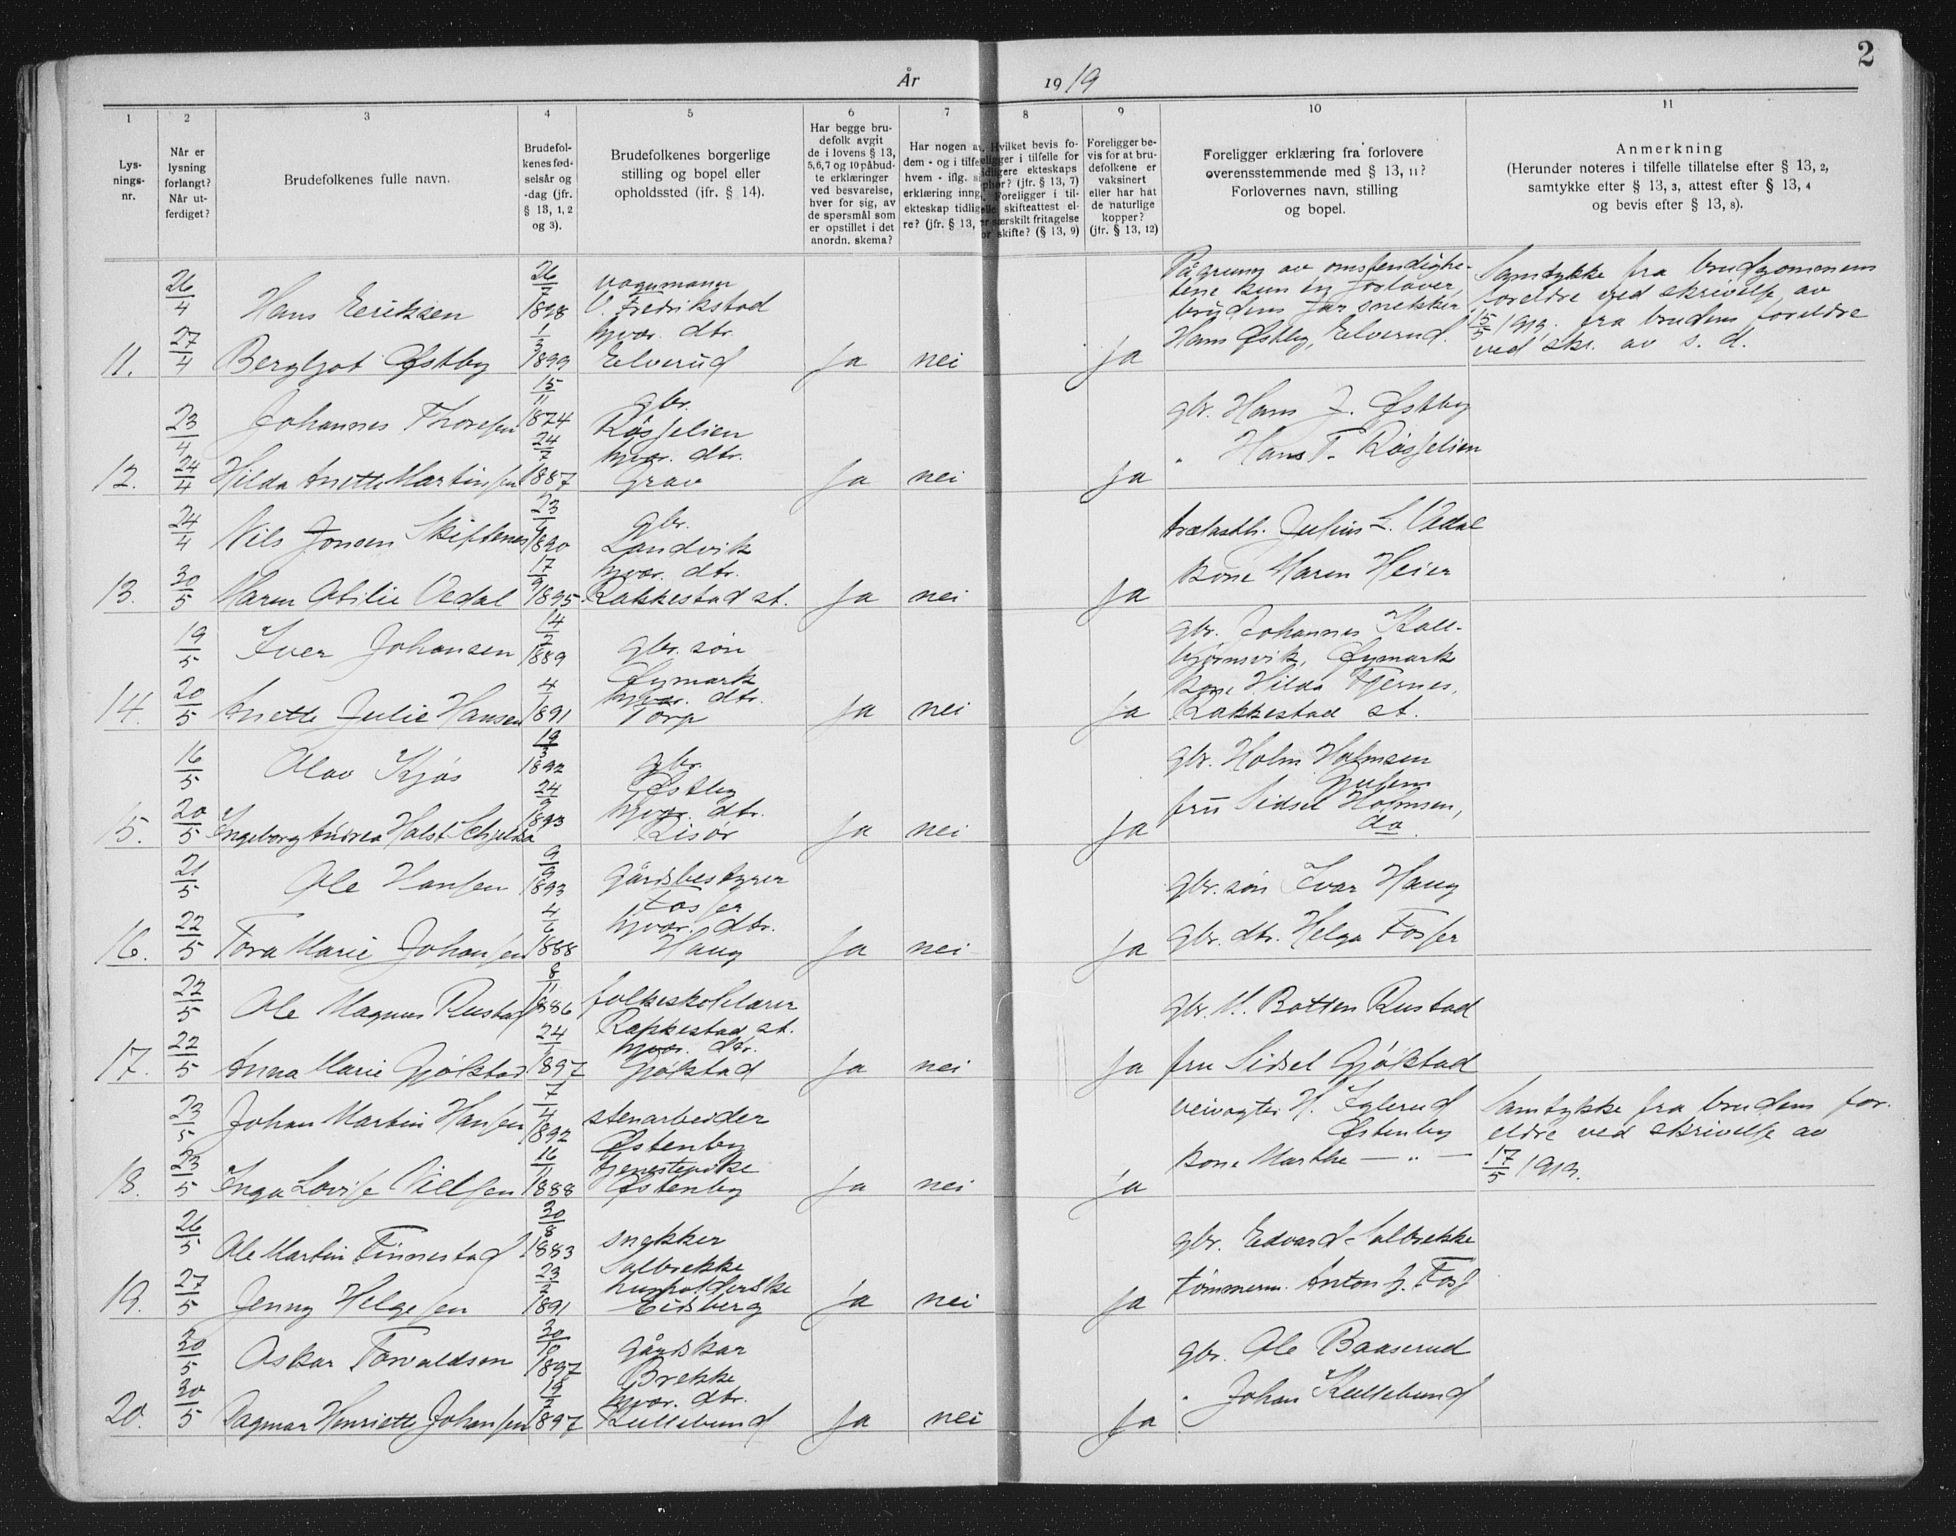 2
År 1919
1 2 3 4 5 6 7 8 9 10 11
Lysnings-nr.
Når er lysning forlangt? Når utferdiget?
Brudefolkenes fulle navn.
Brudefolkenes fødselsår og -dag (jfr. § 13, 1, 2 og 3).
Brudefolkenes borgerlige stilling og bopel eller opholdssted (jfr. § 14).
Har begge brudefolk avgit de i lovens § 13, 5,6,7 og 10 påbudte erklæringer ved besvarelse, hver for sig, av de spørsmål som er opstillet i det anordn. skema?
Har nogen av dem - og i tilfelle hvem - iflg.
erklæring inng.
ekteskap tidligere? (jfr. § 13,
Hvilket bevis foreligger i tilfelle for tidligere ekteskaps ophør? (jfr. § 13, 7) Foreligger i tilfelle skifteattest eller særskilt fritagelse for skifte? (§ 13, 9)
Foreligger bevis for at brudefolkene er vaksinert eller har hat de naturlige kopper? (jfr. § 13, 12)
Foreligger erklæring fra forlovere overensstemmende med § 13, 11? Forlovernes navn, stilling og bopel.
Anmerkning
(Herunder noteres i tilfelle tillatelse efter § 13, 2, samtykke efter § 13, 3, attest efter § 13, 4 og bevis efter § 13, 8).
26/4 Hans Eriksen 1898 V. Fredrikstad På grunn av omstendighetene kun en forlover, brudens far snekker Hans Østby, Elverud.
Samtykke fra brudgommens foreldre ved skrivelse av 15/5 1919. fra brudens foreldre ved skr. av s. d.
11. 27/4 Bergljot Østby 1/3 1899 hjvær. dtr. Elverud Ja nei Ja
23/4 Johannes Thoresen 15/11 1874 gbr. Røsjelien gbr. Hans J. Østby
12. 24/4 Hilda Anette Martinsen 24/7 1887 hjvær. dtr. Grav Ja nei Ja " Hans T. Røsjelien
24/4 Nils Jonsen Skiftenes 1890 gbr. Landvik trælasth. Julius L. Vedal
13. 20/5 Maren Otilie Vedal 17/9 1895 hjvær. dtr. Rakkestad st. Ja nei Ja kone Maren Heier
19/5 Iver Johansen 14/7 1889 gbr. søn Øymark gbr. Johannes Kallbjørnsvik, Øymark
14. 20/5 Anette Julie Hansen 4/1 1891 hjvær. dtr. Torp Ja nei Ja kone Hilda Fjernes, Rakkestad st.
16/5 Olav Kjøs 19/3 1892 gbr. Østby gbr. Holm Holmsen
15. 20/5 Ingeborg Andrea Holst 24/9 1893 hjvær. dtr. Risør Ja nei Ja fru Sidsel Holmsen, do.
21/5 Ole Hansen 9/9 1893 gårdsbestyrer Fosser gbr. søn Ivar Haug
16. 22/5 Tora Marie Johansen 4/6 1888 hjvær. dtr. Haug Ja nei Ja gbr. dtr. Helga Fosser
22/5 Ole Magnus Rustad 8/11 1886 folkeskolelærer Rakkestad st. gbr. M. Botten Rustad
17. 22/5 Anna Marie Gjølstad 24/1 1897 hjvær. dtr. Gjølstad Ja nei Ja fru Sidsel Gjølstad
23/5 Johan Martin Hansen 7/4 1892 stenarbeider Østenby veivogter H. Iglerud Østenby Samtykke fra brudens foreldre ved skrivelse av 17/5 1919.
18. 23/5 Inga Lovise Nielsen 16/11 1888 tjenestepike Østenby Ja nei Ja kone Marthe — " —
26/5 Ole Martin Finnestad 30/8 1883 snekker Solbrekke gbr. Edvard Solbrekke
19. 27/5 Jenny Helgesen 23/2 1891 husholderske Eidsberg Ja nei Ja tømmerm. Anton J. Foss
20/5 Oskar Torvaldsen 1897 gårdskar Brekke gbr. Ole Baaserud
20. 30/5 Dagmar Henriette Johansen 19/2 1897 hjvær. dtr. Kullebund Ja nei Ja " Johan Kullebund